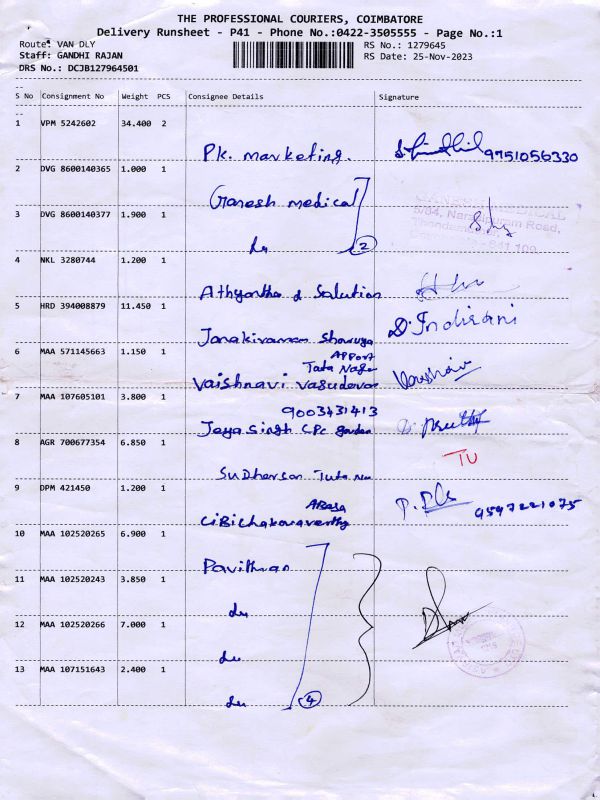 THE PROFESSIONAL COURIERS, COIMBATORE
Delivery Runsheet - P41 - Phone No.:0422-3505555 - Page No.:1
Route: VAN DLY
RS No.: 1279645
Staff: GANDHI RAJAN
RS Date: 25-Nov-2023
DRS No.: DCJB127964501
S No Consignment No Weight PCS Consignee Details Signature
1 VPM 5242602 34.400 2
PK. marketing. 9751056330
2 DVG 8600140365 1.000 1
Ganesh medical
3 DVG 8600140377 1.900 1
du 2
4 NKL 3280744 1.200 1
Athyantha & Solution
5 HRD 394008879 11.450 1 D. Indirani
Janakiraman
6 MAA 571145663 1.150 1
Tata Nagar
Vaishnavi Vasudevan
7 MAA 107605101 3.800 1
9003431413
Jeya Singh CPC garden
8 AGR 700677354 6.850 1
TU
Sudharson Tata Na
9 DPM 421450 1.200 1
9597221075
Cibichakaravarthy
10 MAA 102520265 6.900 1
Pavithran
11 MAA 102520243 3.850 1
du
12 MAA 102520266 7.000 1
du
13 MAA 107151643 2.400 1
du 4